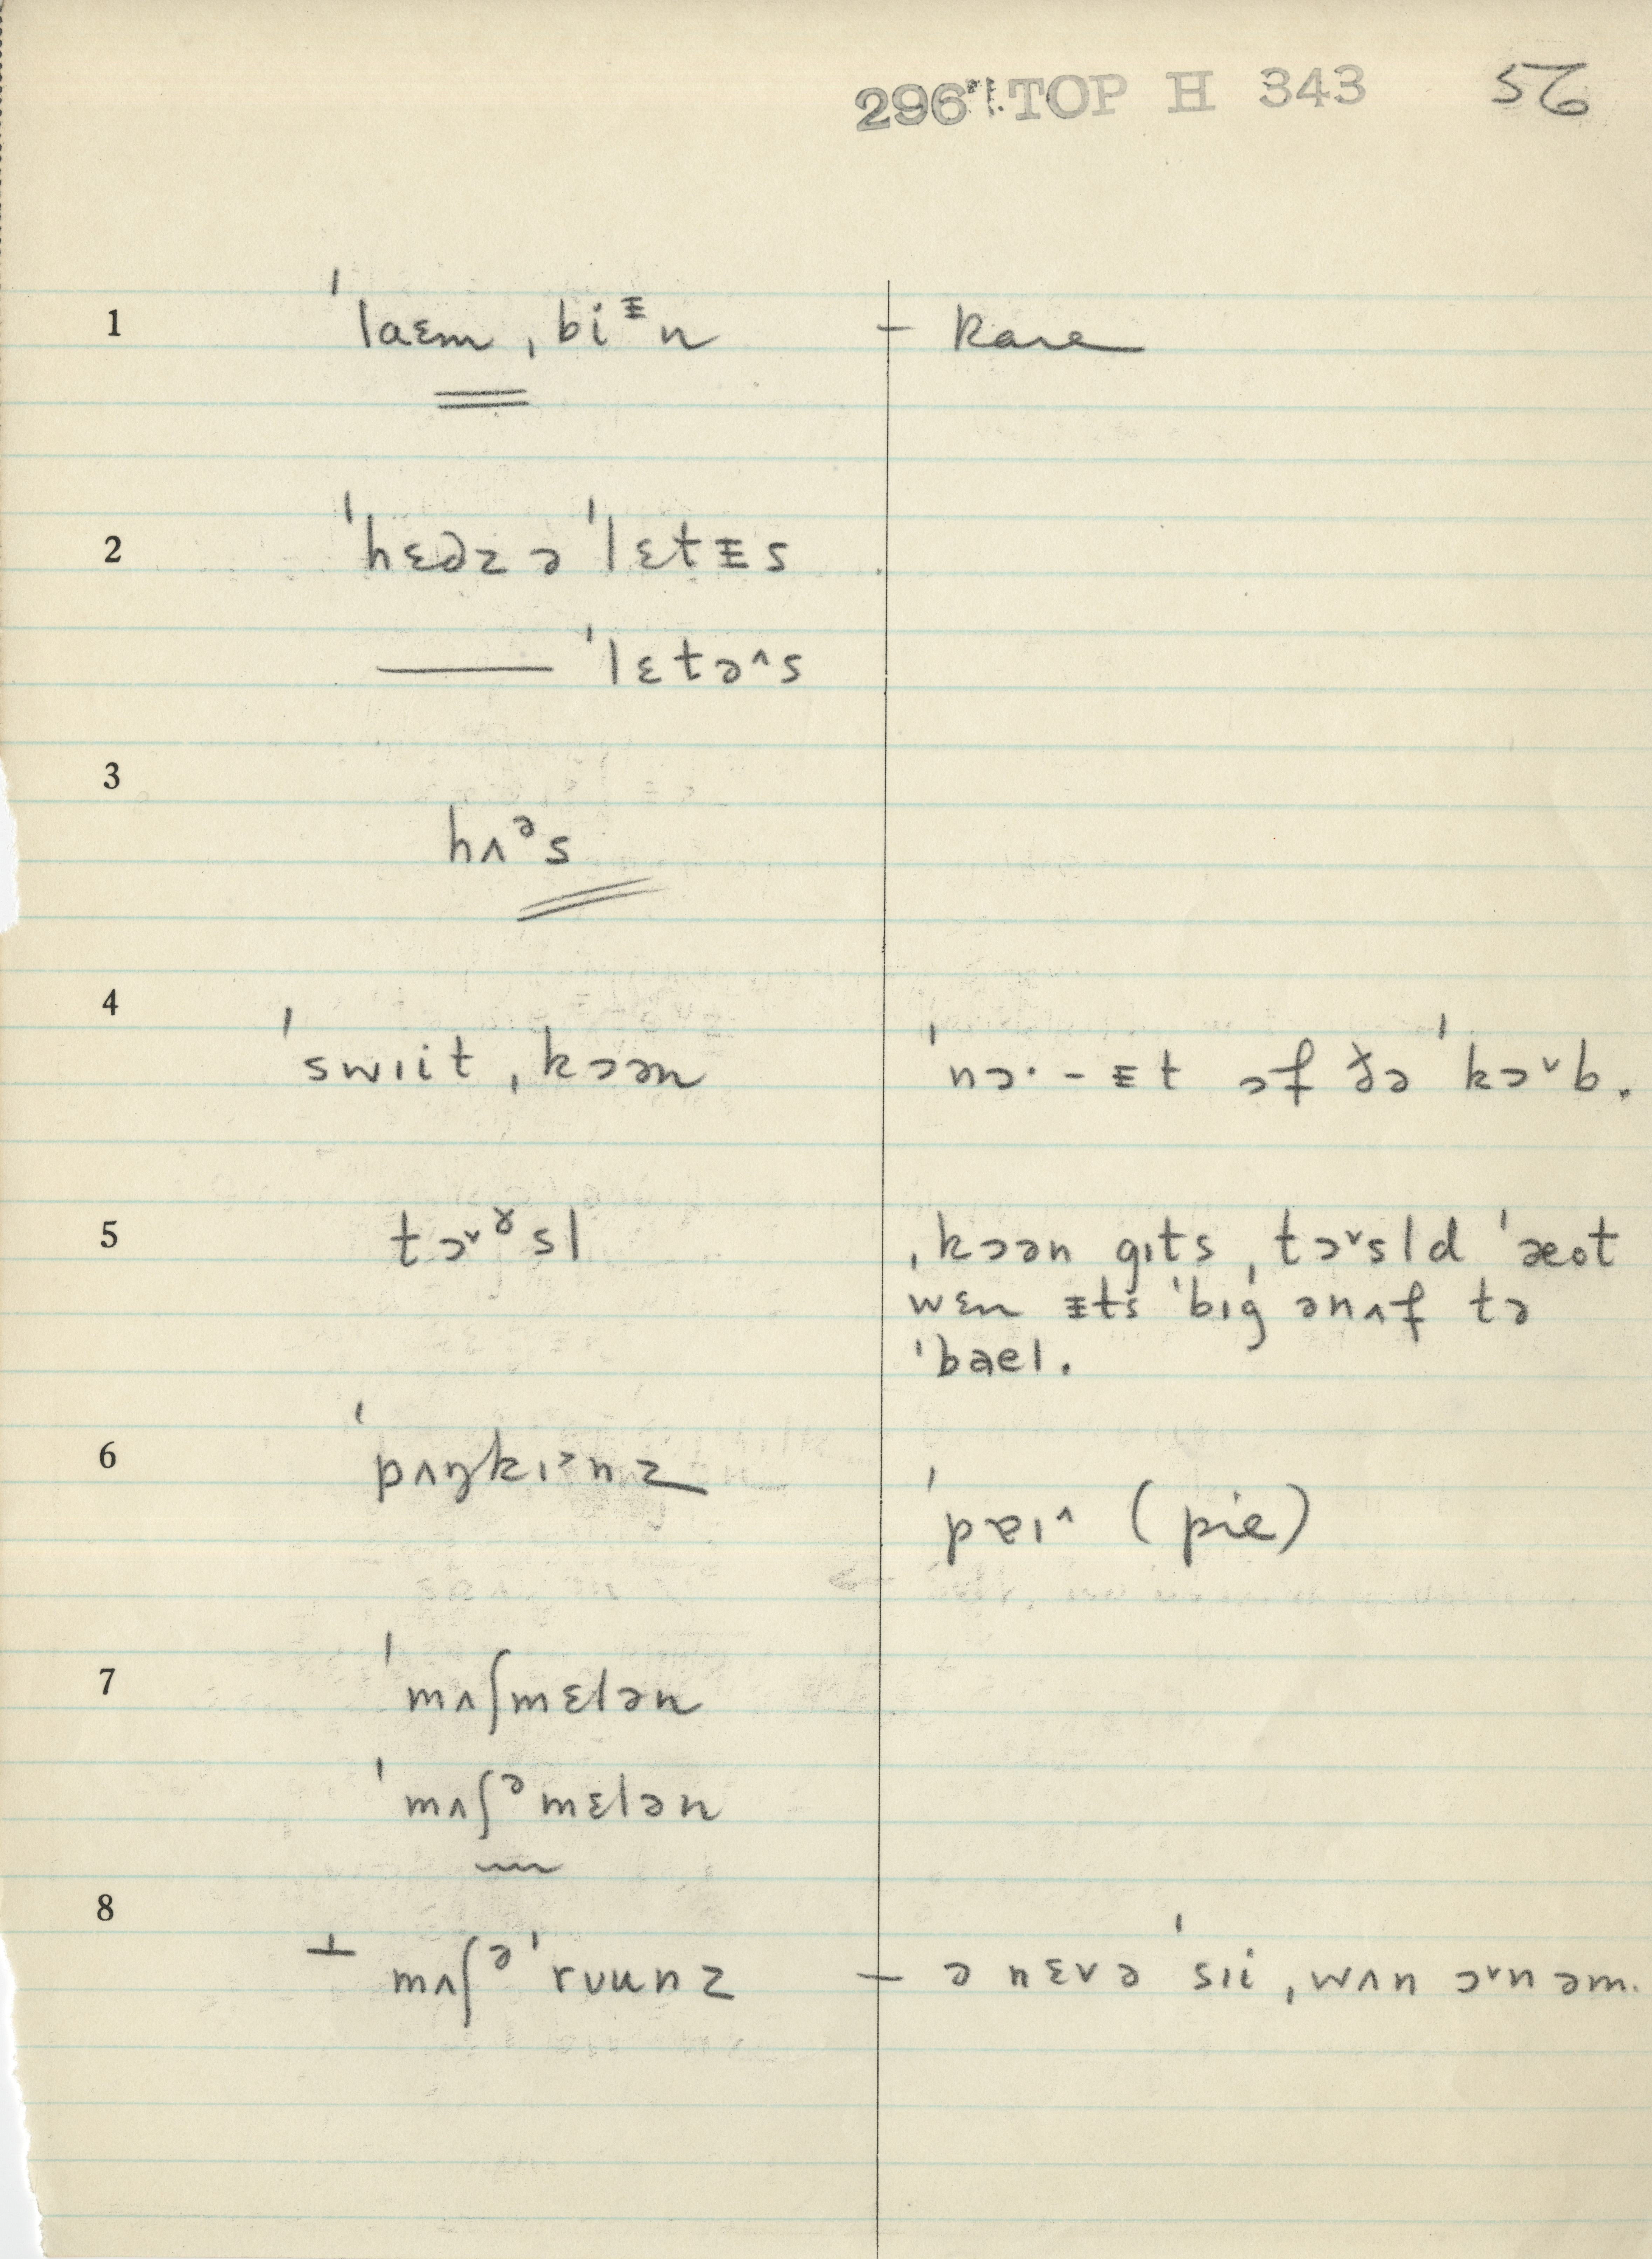 296 TOP H 343 56
1 ˈlaɛm ˌbiᵻn – Rare
2 ˈhɛəz ə ˈlɛtɪs
—— ˈlɛtə^s
3 hʌᵊs
4 ˈswɪit ˌkɔən ˈnɔ· – ɪt əf ðə ˈkɔ˅b.
5 tɔ˅ɤsl ˌkɔən gɪts ˌtɔ˅sld ˈæot
wɛn ɪts ˈbɪg ənʌf tə
ˈbael.
6 ˈpʌŋkɪ˃nz
ˈpɐɪ^ (pie)
7 ˈmʌʃmɛlən
ˈmʌʃᵊmɛlən
8 ⊥ mʌʃᵊˈrʊunz – ə nɛvə ˈsɪi ˌwʌn ɔ˅nəm.